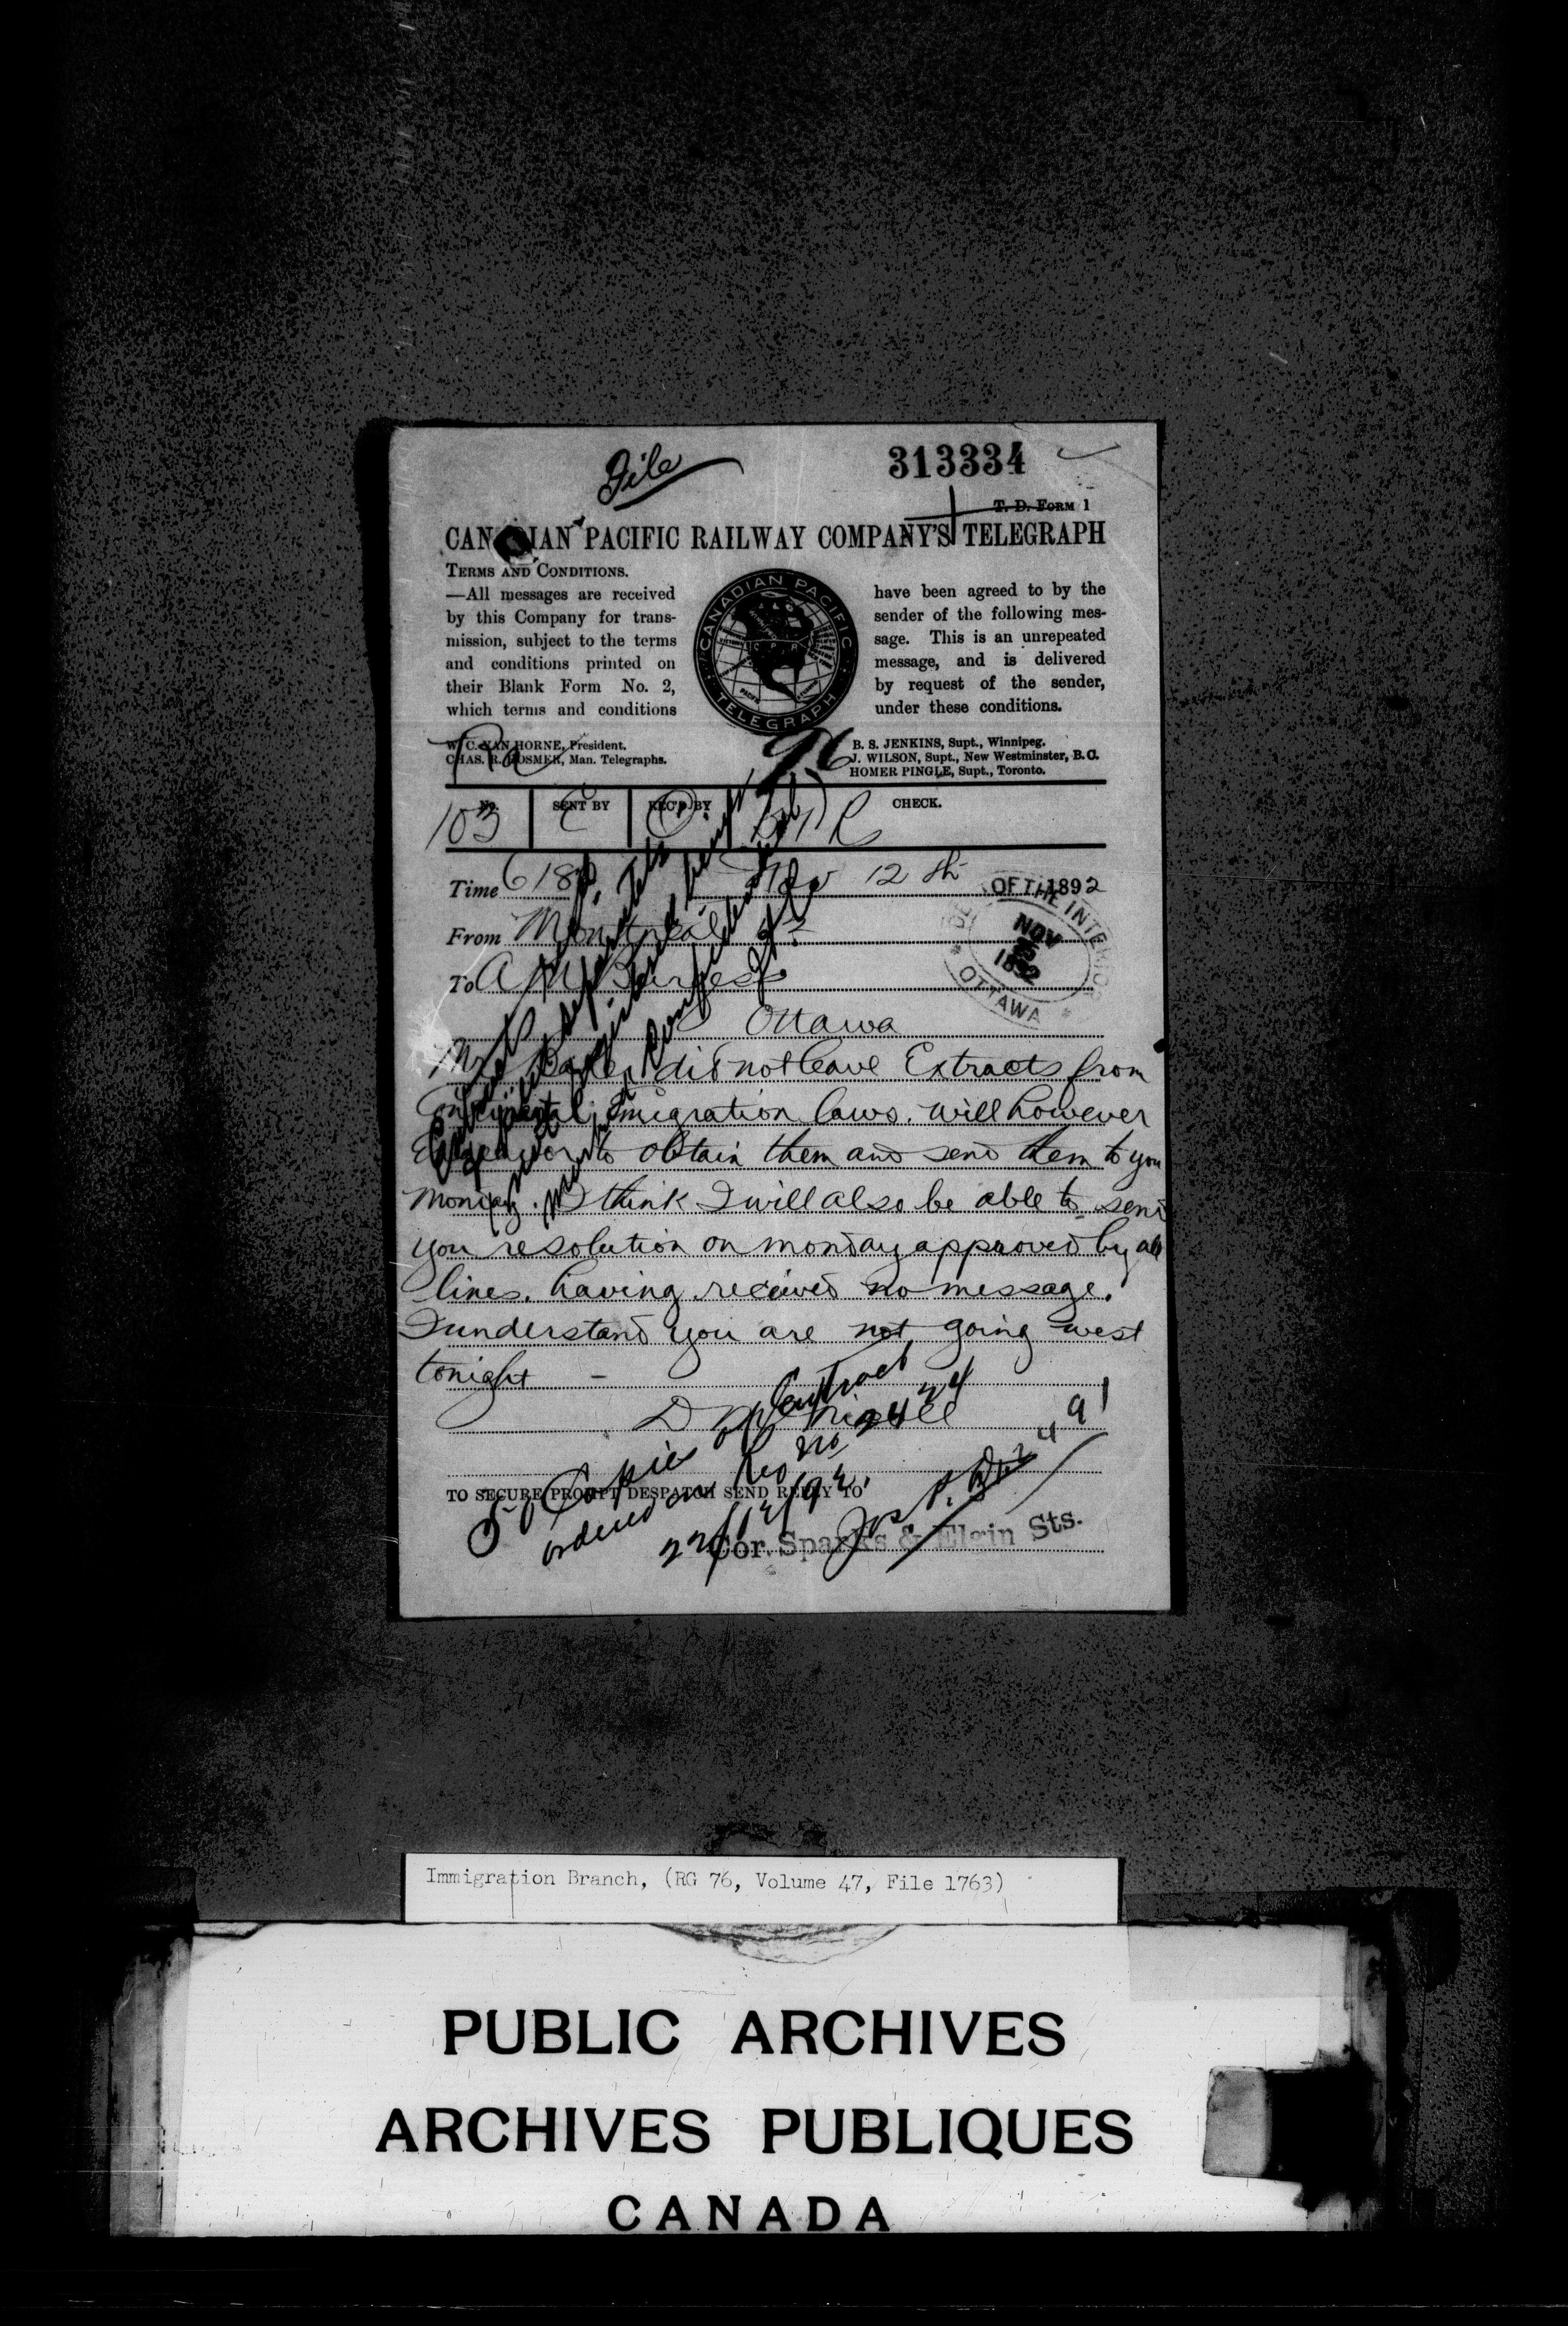 File
313334
T. D. FORM 1
CANADIAN PACIFIC RAILWAY COMPANY'S TELEGRAPH
TERMS AND CONDITIONS.
—All messages are received
by this Company for trans-
mission, subject to the terms
and conditions printed on
their Blank Form No. 2,
which terms and conditions
CANADIAN PACIFIC
C P R
TELEGRAPH
have been agreed to by the
sender of the following mes-
sage. This is an unrepeated
message, and is delivered
by request of the sender,
under these conditions.
W. C. VAN HORNE, President.
CHAS. R. HOSMER, Man. Telegraphs.
B. S. JENKINS, Supt., Winnipeg.
J. WILSON, Supt., New Westminster, B.C.
HOMER PINGLE, Supt., Toronto.
No. SENT BY REC'D BY CHECK.
103
Time 618 Nov 12 th 1892
OF THE INTERIOR
NOV
1892
OTTAWA
From Montreal
To A M Burgess
Ottawa
Mr did not leave Extracts from
Continental Emigration laws. will however
Endeavor to obtain them and send them to you
monday. I think I will also be able to send
you resolution on monday approved by all
lines. having received no message.
I understand you are not going west
tonight —
50 Copies of Contract
ordered on Req no 2424
22/12/92.
TO SECURE PROMPT DESPATCH SEND REPLY TO
Cor. Sparks & Elgin Sts.
Immigration Branch, (RG 76, Volume 47, File 1763)
PUBLIC ARCHIVES
ARCHIVES PUBLIQUES
CANADA